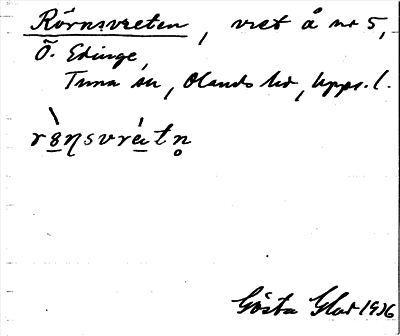 Rörnsvreten, vret å nr 5,
Ö. Edinge,
Tuna sn, Olands hd, Upps. l.
Gösta Glad 1936